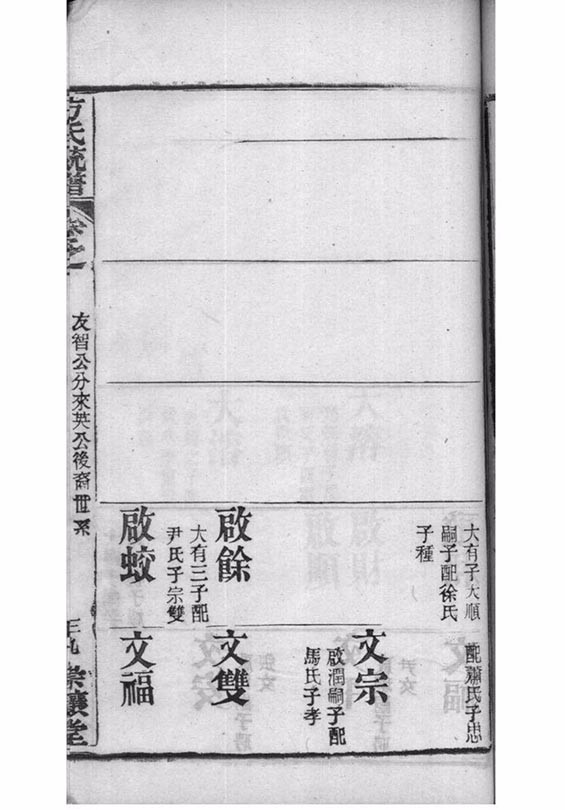 大有子大順
嗣子配徐氏
子種
啟餘
大有三子配
尹氏子宗雙
啟蛟
配蕭氏子忠
文宗
啟潤嗣子配
馬氏子孝
文雙
文福
方氏統譜
卷之
友智公分來英公後裔世系
崇讓堂